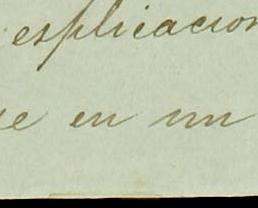 esplicacion
e en un